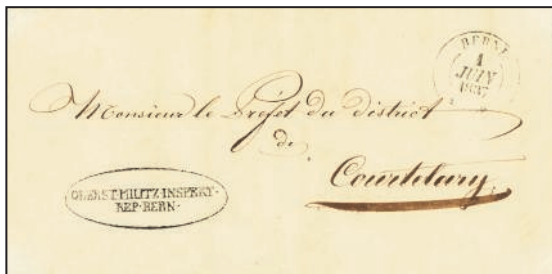 BERNE
1
JUIN
Monsieur le Préfet du district
de
Courtelary
OBERST·MILITZ·INSPEKT·
REP·BERN·